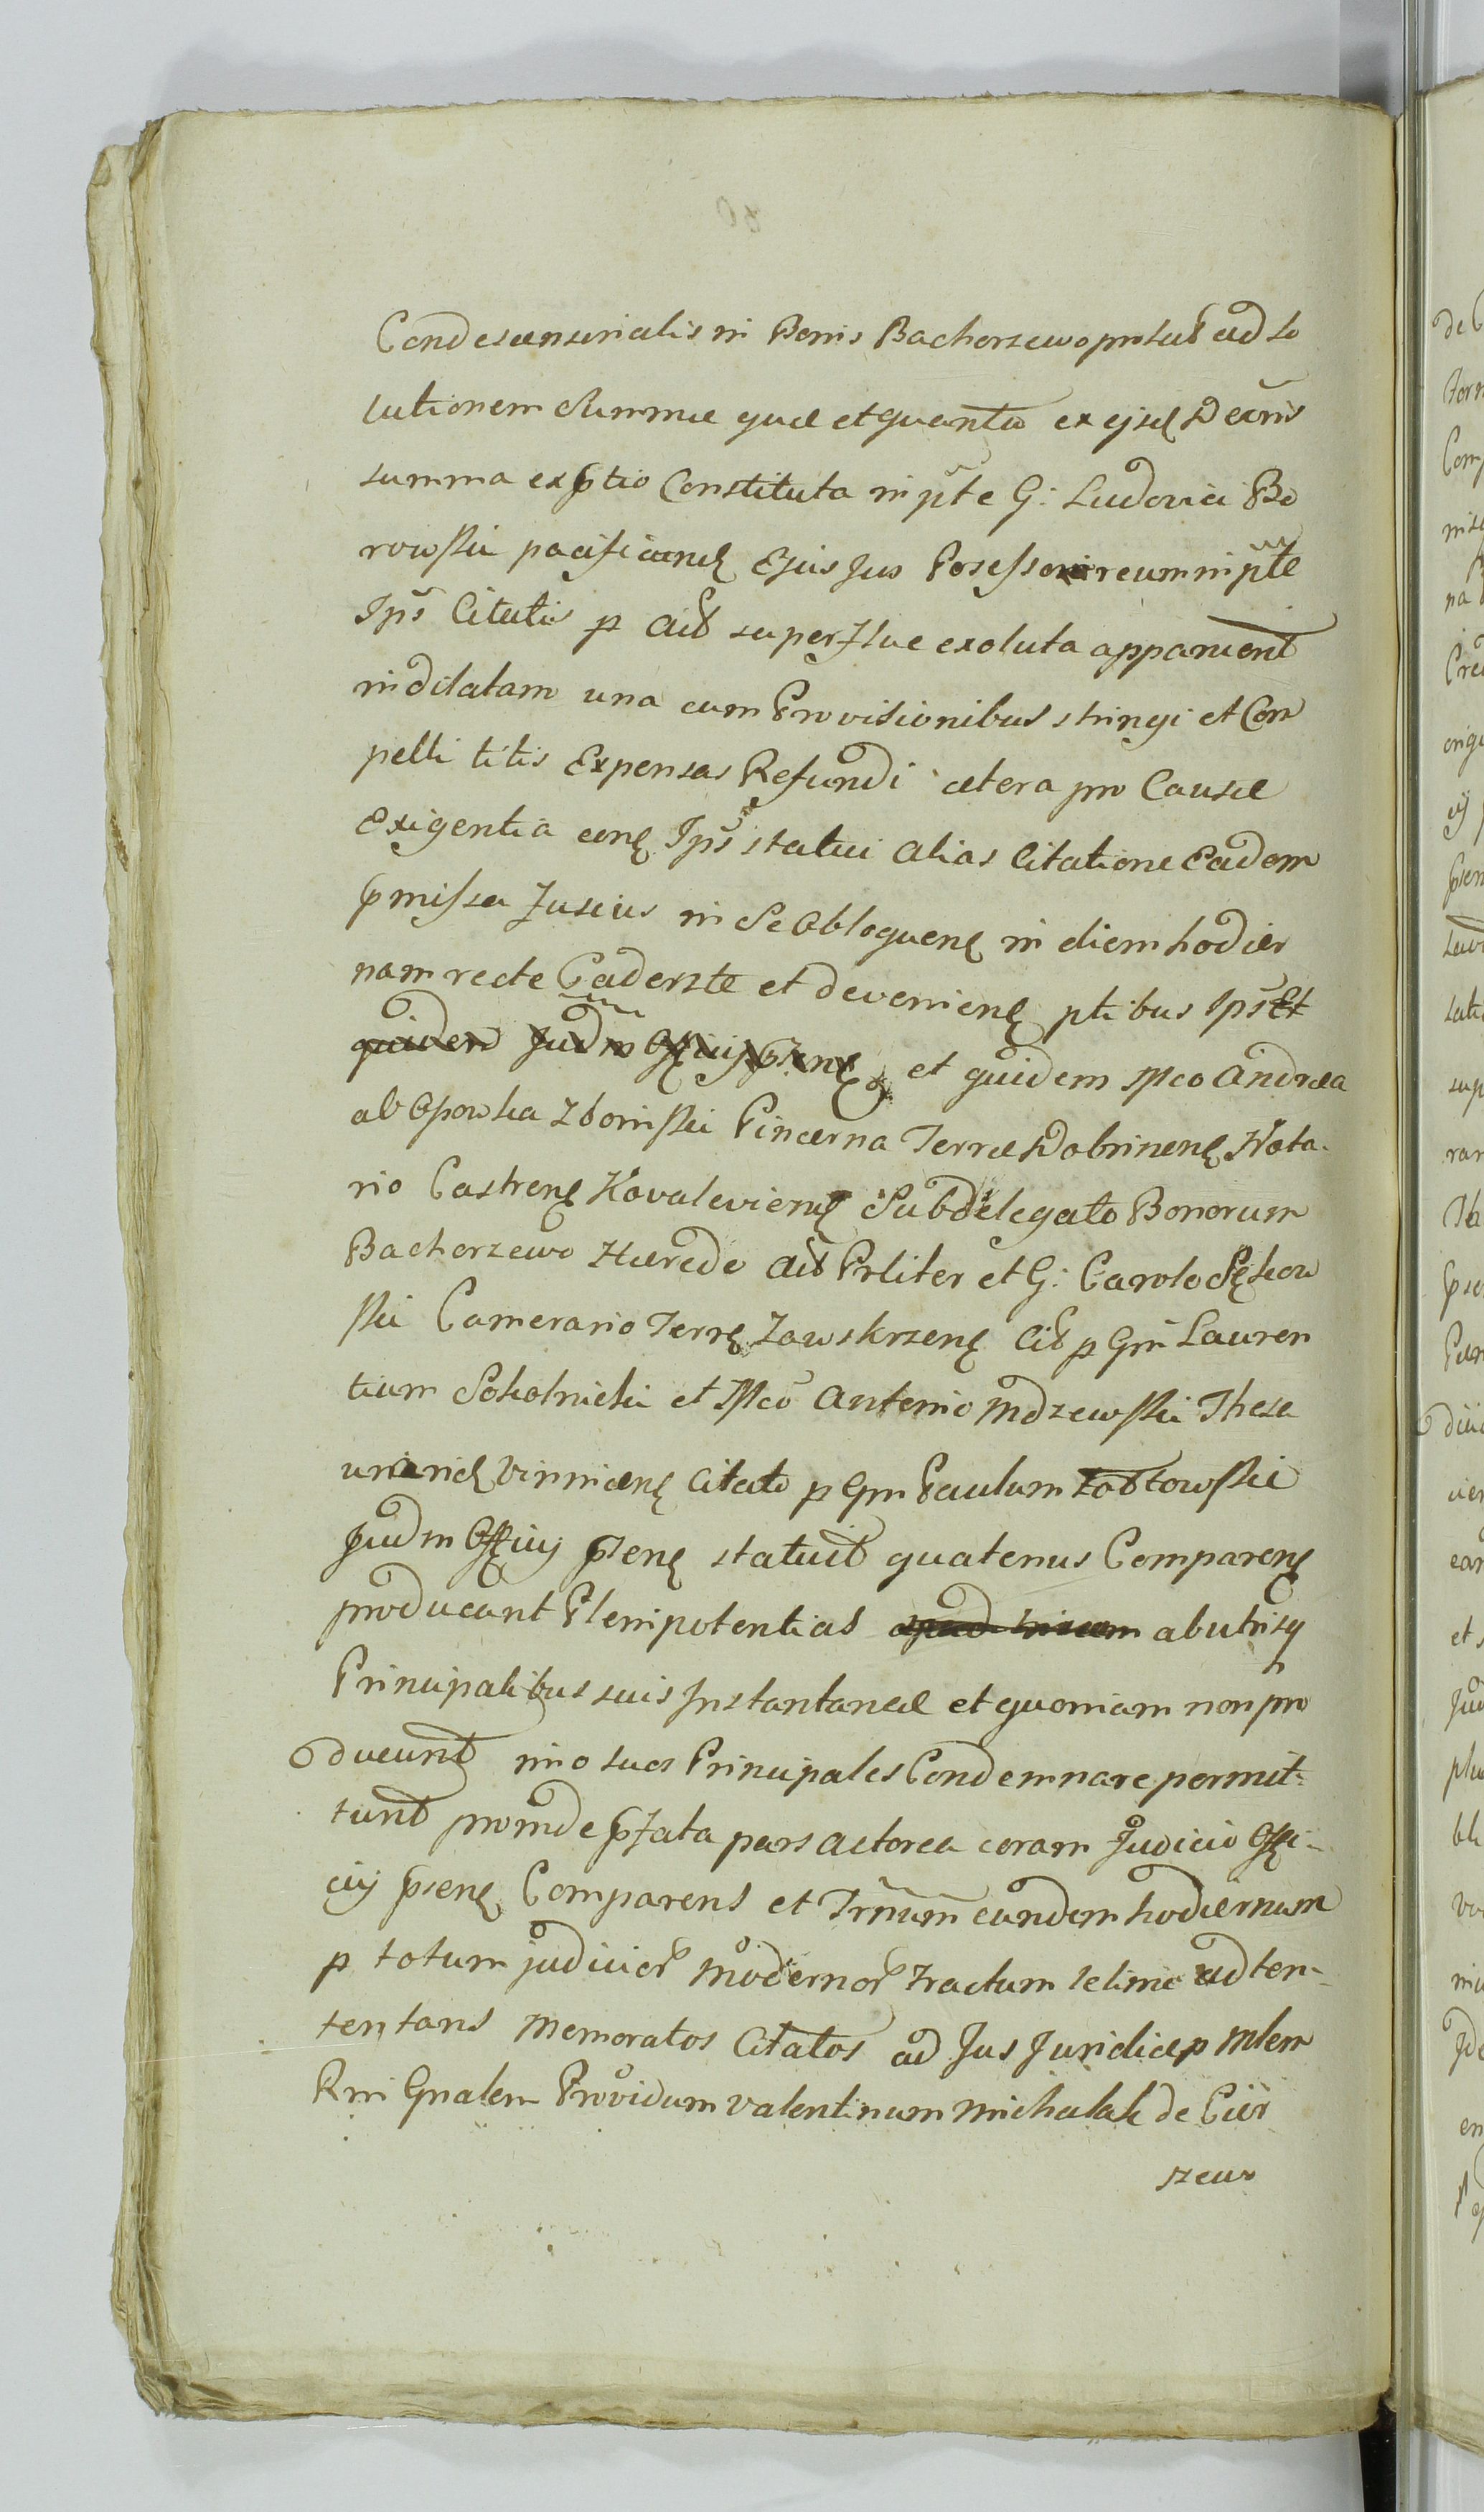 Condescensorialis in Bonis Bachorzewo protul ad so
lutionem Summae quae et quanta ex ejsd Decris
summa ex pptio Constituta in pte G: Ludovici Bo
rowskii pacificand Ejus Jus Possessori reum in pte
Ips Citatis p Act superflue exoluta apparuent
indilatam una cum Provisionibus stringi et Com
pelli litis Expensas Refundi cetera pro Causae
Exigentia conq Ips statui alias Citatione Eadem
pmissa fusius in Se obloquene in diem hodier
nam recte Caderste et devenienq ptibus Ips Et
quidem Judm Officij psenq et quidem Mco Andrea
ab Oporska Zboinskii Pincerna Terrae Dobrinenq Nota-
rio Castrenq Kovaleviensq Subdelegato Bonorum
Bachorzewo Haerede Act Prliter et G: Carolo Sękow
skii Camerario Terrę Zawskrzenq Cit p Gm Lauren
tium Sokolnickii et Mco Antonio Mdzewskii Thesa
urarid Vinnicenq Citato p Gm Paulum
Judm Officij psenq statuit quatenus Comparenq
producant Plenipotentias ab utrisq
Principalibus suis Instantaneae et quoniam non pro
ducunt imo suos Principales Condemnare permit=
tunt proinde pfata pars actorea coram Judicio Offi-
cij psenq Comparens et Trnum eundem hodiernum
p totum judicior modernor tractum legime adten-
tentans memoratos Citatos ad Jus Juridice p Mlem
Rni Gnalem Providum Valentinum Michalak de Cier
rzew